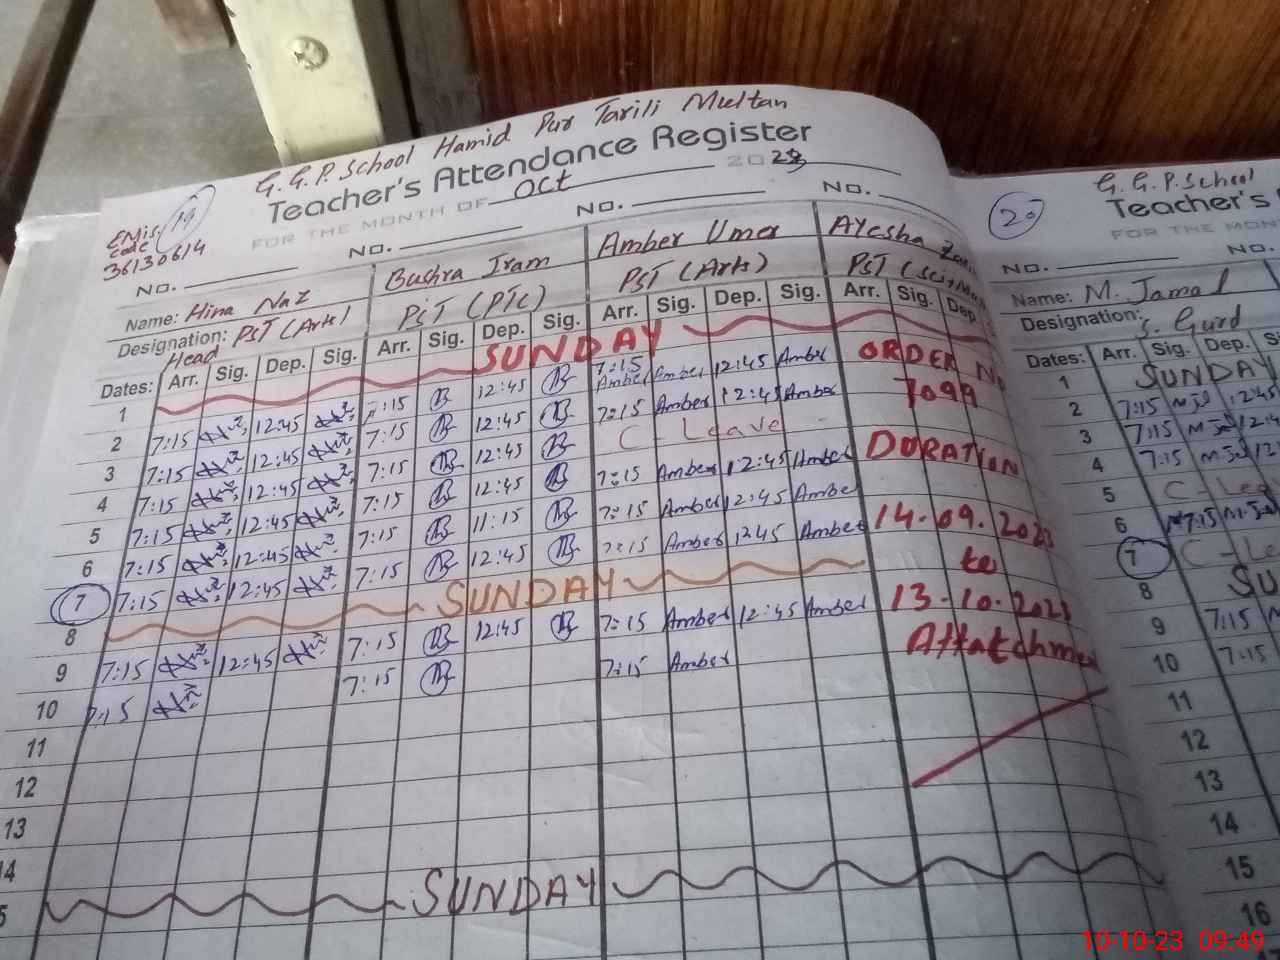 G.G.P.School Hamid Pur Tarili Multan
Teacher's Attendance Register
FOR THE MONTH OF Oct 2023
EMIS code 36130614
19
No. No. No. No.
Name: Hina Naz Bushra Iram Amber Umer Ayesha
Designation: Head PST (Arts) PST (PTC) PST (Arts) PST (Sci+Ma
Dates: Arr. Sig. Dep. Sig. Arr. Sig. Dep. Sig. Arr. Sig. Dep. Sig. Arr. Sig. Dep.
1 SUNDAY
2 7:15 12:45 7:15 B 12:45 B 7:15 Amber Amber 12:45 Amber
3 7:15 12:45 7:15 B 12:45 B 7:15 Amber 12:45 Amber
4 7:15 12:45 7:15 B 12:45 B C - Leave
5 7:15 12:45 7:15 B 12:45 B 7:15 Amber 12:45 Amber
6 7:15 12:45 7:15 B 11:15 B 7:15 Amber 12:45 Amber
7 7:15 12:45 7:15 B 12:45 B 7:15 Amber 12:45 Amber
8 SUNDAY
9 7:15 12:45 7:15 B 12:45 B 7:15 Amber 12:45 Amber
10 7:15 7:15 B 7:15 Amber
11
12
13
14
5 SUNDAY
ORDER No
7099
DURATION
14.09.2023
to
13.10.2023
Attatchme
20
G.G.P.School
Teacher's
FOR THE MON
No. No.
Name: M. Jamal
Designation: S. Gurd
Dates: Arr. Sig. Dep. S
1 SUNDAY
2 7:15 12:45
3 7:15 12:4
4 7:15 12
5 C - Lea
6 7:15
7 C - Le
8 SU
9 7:15
10 7:15
11
12
13
14
15
16
10-10-23 09:49